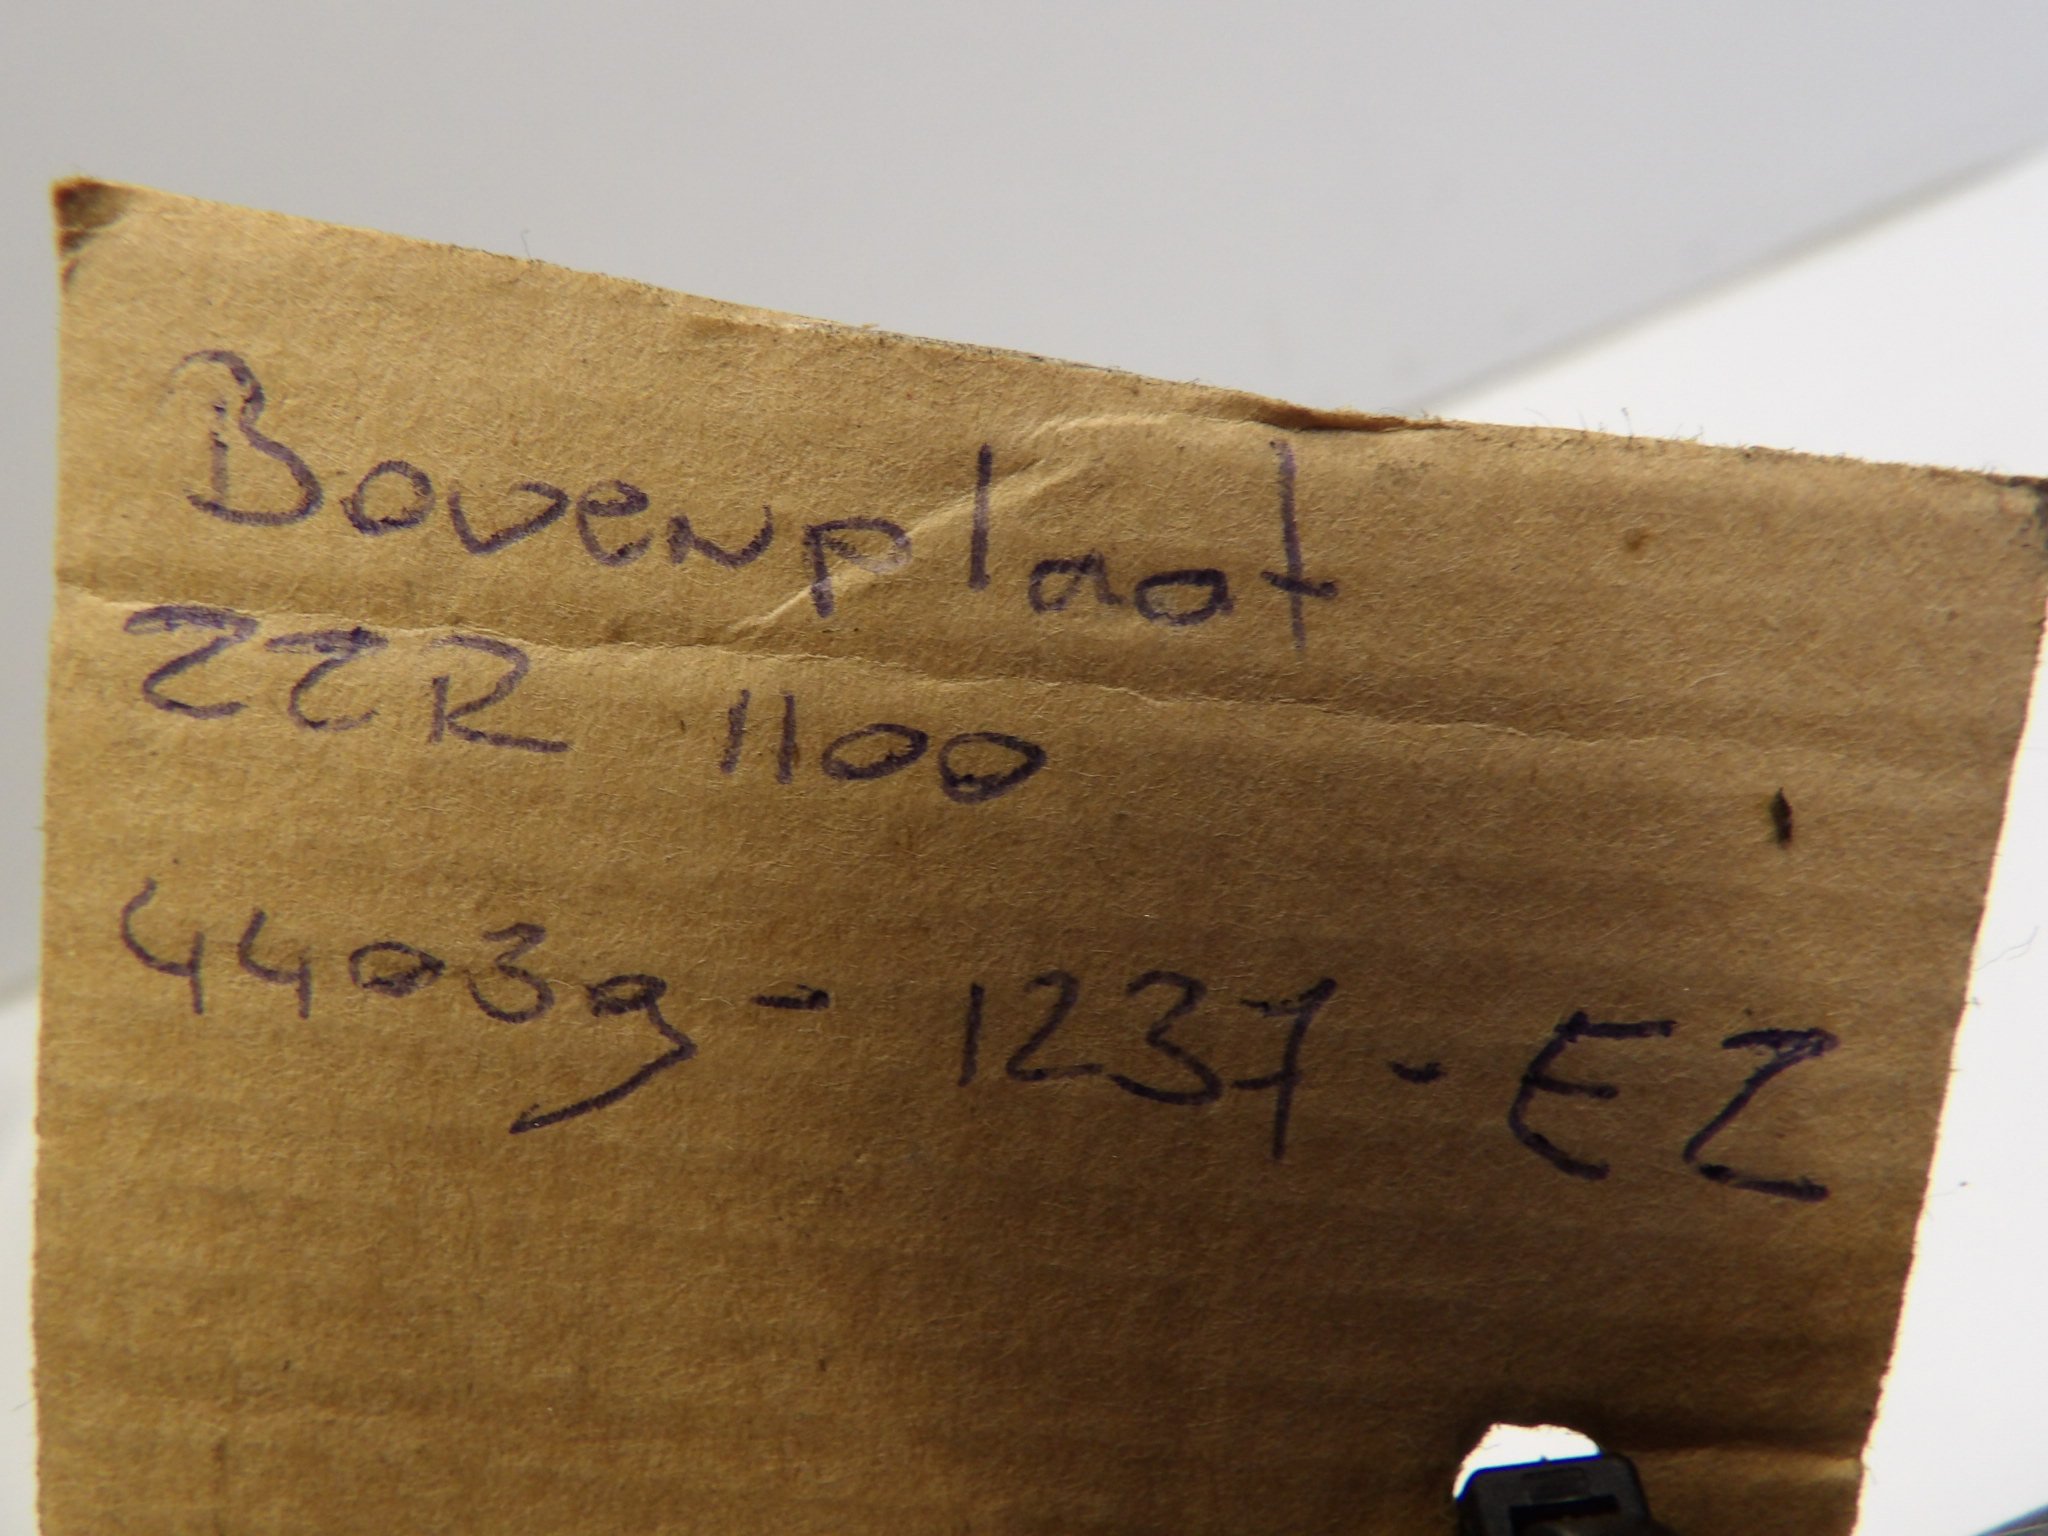 Bovenplaat
ZZR 1100
44039-1237-EZ